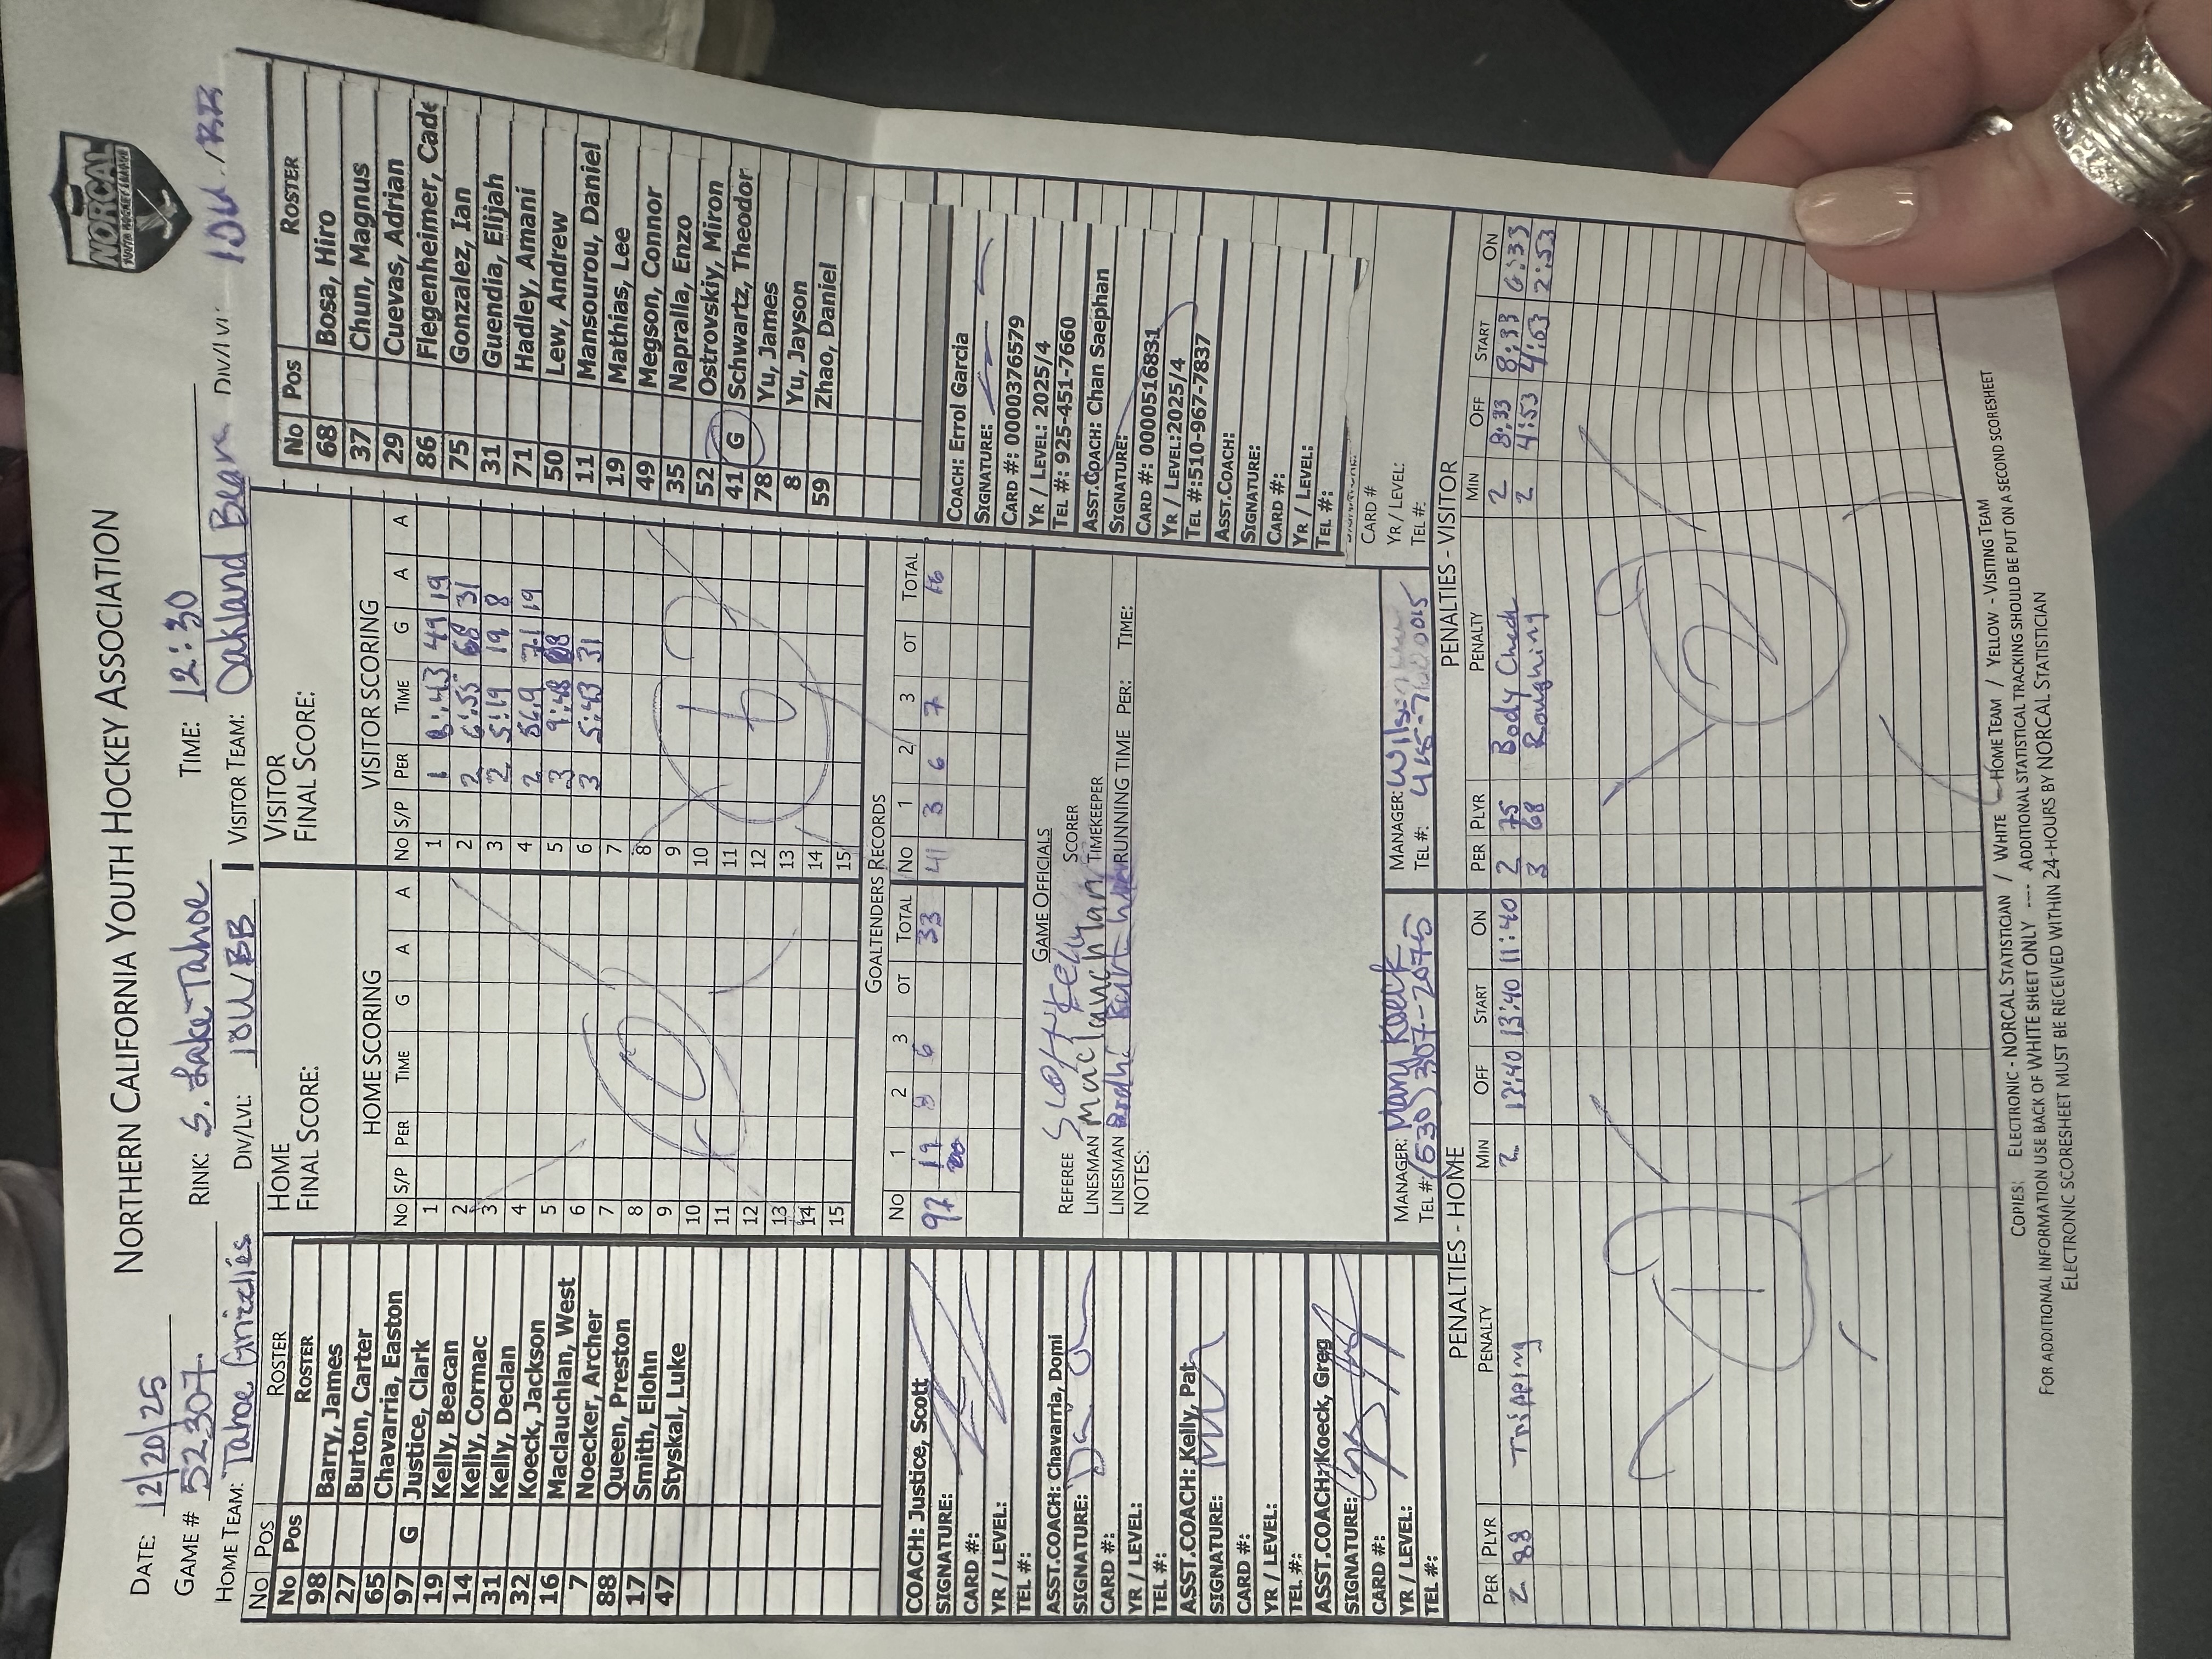 NORTHERN CALIFORNIA YOUTH HOCKEY ASSOCIATION
NORCAL
YOUTH HOCKEY LEAGUE
DATE: 12/20/25
GAME # 52307 RINK: S. Lake Tahoe TIME: 12:30
HOME TEAM: Tahoe Grizzlies DIV/LVL: 10U/BB VISITOR TEAM: Oakland Bears DIV/LVL: 10U/BB
No POS ROSTER
No Pos ROSTER
98 Barry, James
27 Burton, Carter
65 Chavarria, Easton
97 G Justice, Clark
19 Kelly, Beacan
14 Kelly, Cormac
31 Kelly, Declan
32 Koeck, Jackson
16 Maclauchlan, West
7 Noecker, Archer
88 Queen, Preston
17 Smith, Elohn
47 Styskal, Luke
COACH: Justice, Scott
SIGNATURE:
CARD #:
YR / LEVEL:
TEL #:
ASST.COACH: Chavarria, Domi
SIGNATURE:
CARD #:
YR / LEVEL:
TEL #:
ASST.COACH: Kelly, Pat
SIGNATURE:
CARD #:
YR / LEVEL:
TEL #:
ASST.COACH: Koeck, Greg
SIGNATURE:
CARD #:
YR / LEVEL:
TEL #:
HOME
FINAL SCORE:
HOME SCORING
No S/P PER TIME G A A
1
2
3
4
5
6
7
8
9
10
11
12
13
14
15
0
VISITOR
FINAL SCORE:
VISITOR SCORING
No S/P PER TIME G A A
1 1 8:43 49 19
2 2 6:55 68 31
3 2 5:19 19 8
4 2 56.9 71 19
5 3 9:48 68
6 3 5:43 31
7
8
9
10
11
12
13
14
15
6
GOALTENDERS RECORDS
No 1 2 3 OT TOTAL No 1 2 3 OT TOTAL
97 19 8 6 33 41 3 6 7 16
GAME OFFICIALS
REFEREE Scott Kelly SCORER
LINESMAN Maclauchlan TIMEKEEPER
LINESMAN RUNNING TIME PER: TIME:
NOTES:
MANAGER: Mary Koeck
TEL #: (530) 307-2075
MANAGER:
TEL #:
No Pos ROSTER
68 Bosa, Hiro
37 Chun, Magnus
29 Cuevas, Adrian
86 Flegenheimer, Cade
75 Gonzalez, Ian
31 Guendia, Elijah
71 Hadley, Amani
50 Lew, Andrew
11 Mansourou, Daniel
19 Mathias, Lee
49 Megson, Connor
35 Napralla, Enzo
52 Ostrovskiy, Miron
41 G Schwartz, Theodor
78 Yu, James
8 Yu, Jayson
59 Zhao, Daniel
COACH: Errol Garcia
SIGNATURE:
CARD #: 0000376579
YR / LEVEL: 2025/4
TEL #: 925-451-7660
ASST.COACH: Chan Saephan
SIGNATURE:
CARD #: 0000516831
YR / LEVEL:2025/4
TEL #:510-967-7837
ASST.COACH:
SIGNATURE:
CARD #:
YR / LEVEL:
TEL #:
CARD #
YR / LEVEL:
TEL #:
PENALTIES - HOME
PER PLYR PENALTY MIN OFF START ON
2 88 Tripping 2 13:40 13:40 11:40
1
PENALTIES - VISITOR
PER PLYR PENALTY MIN OFF START ON
2 75 Body Check 2 8:33 8:33 6:33
3 68 Roughing 2 4:53 4:53 2:53
2
COPIES: ELECTRONIC - NORCAL STATISTICIAN / WHITE - HOME TEAM / YELLOW - VISITING TEAM
FOR ADDITIONAL INFORMATION USE BACK OF WHITE SHEET ONLY --- ADDITIONAL STATISTICAL TRACKING SHOULD BE PUT ON A SECOND SCORESHEET
ELECTRONIC SCORESHEET MUST BE RECEIVED WITHIN 24-HOURS BY NORCAL STATISTICIAN